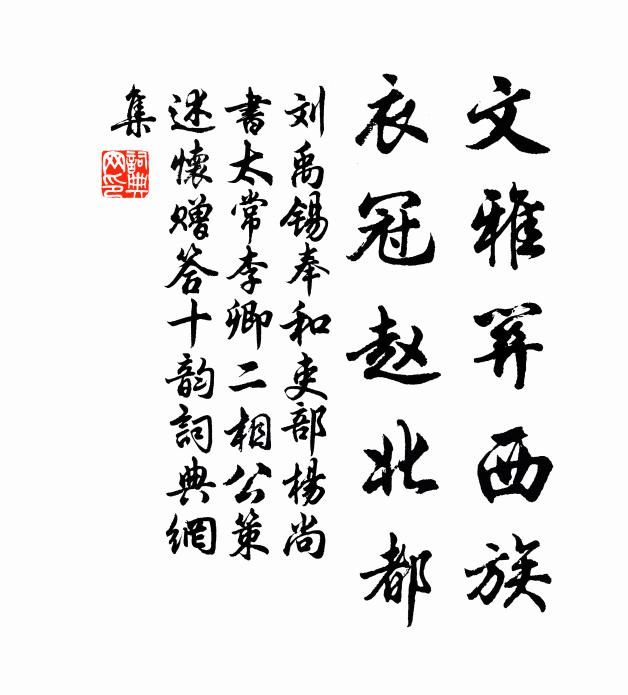 文雅笄西族
衣冠赵北都
刘禹锡奉和吏部楊尚
書太常李卿二相公策
述懷赠答十韵詞典網
集
詞典網印